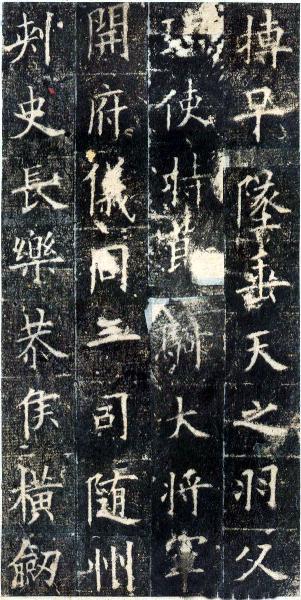 摶早墜垂天之羽父
使持騎大將軍
開府儀同三司隨州
刺史長樂恭侯橫劍